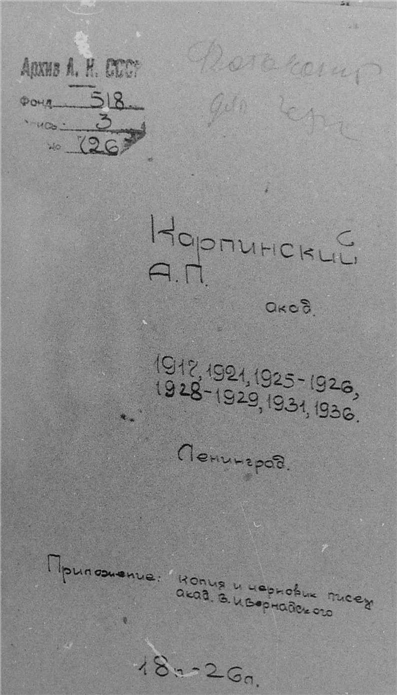 Архив А. Н. СССР
Фонд 518
Опись 3
№ 726
для
Карпинский
А.П.
акад.
1917, 1921, 1925-1926,
1928-1929, 1931, 1936.
Ленинград.
Приложение: копия и черновик писем
акад. В.И Вернадского
18л-26л.